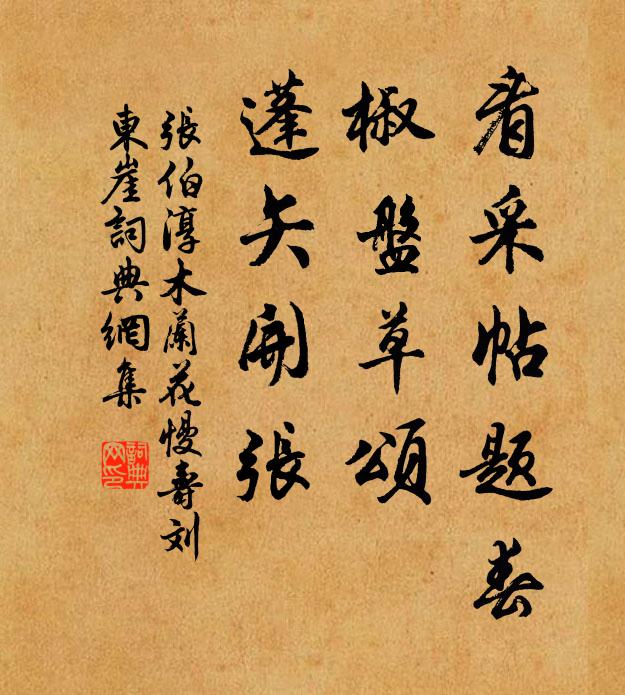 看采帖题春
椒盤草頌
蓬矢開張
張伯淳木蘭花慢壽刘
東崖詞典網集
詞典網印